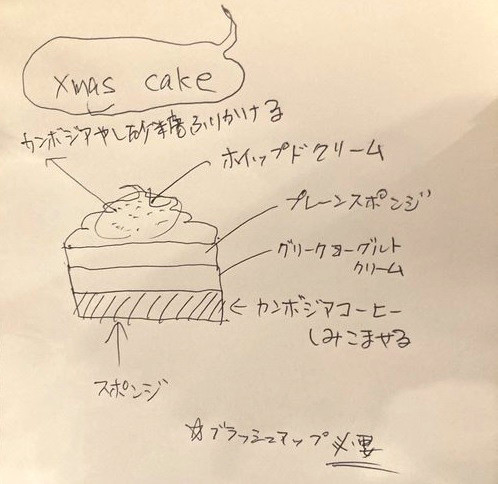 xmas cake
カンボジアやし砂糖ふりかける
ホイップドクリーム
プレーンスポンジ
グリークヨーグルト
クリーム
カンボジアコーヒー
しみこませる
スポンジ
☆ブラッシュアップ必要